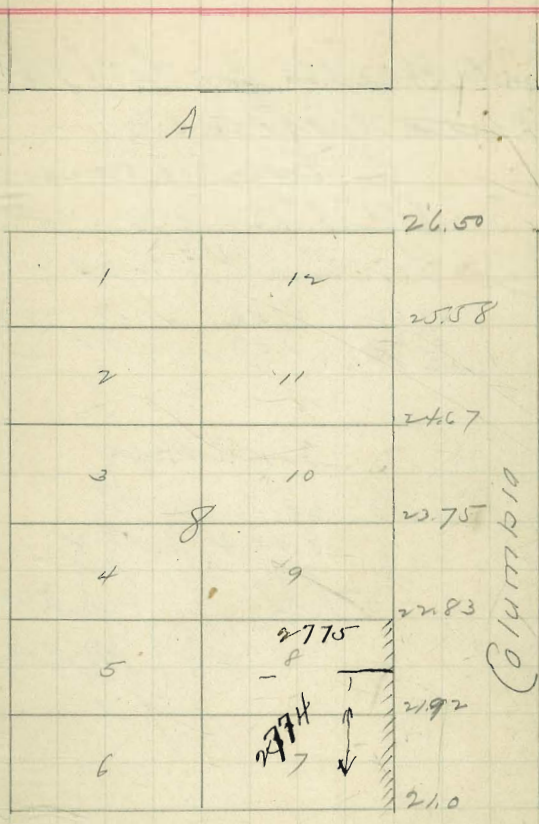 A
26.50
1 12
25.58
2 11
24.67
3 10
23.75
8
4 9
22.83
2775
5 8
21.92
2774
6 7
21.0
Columbia